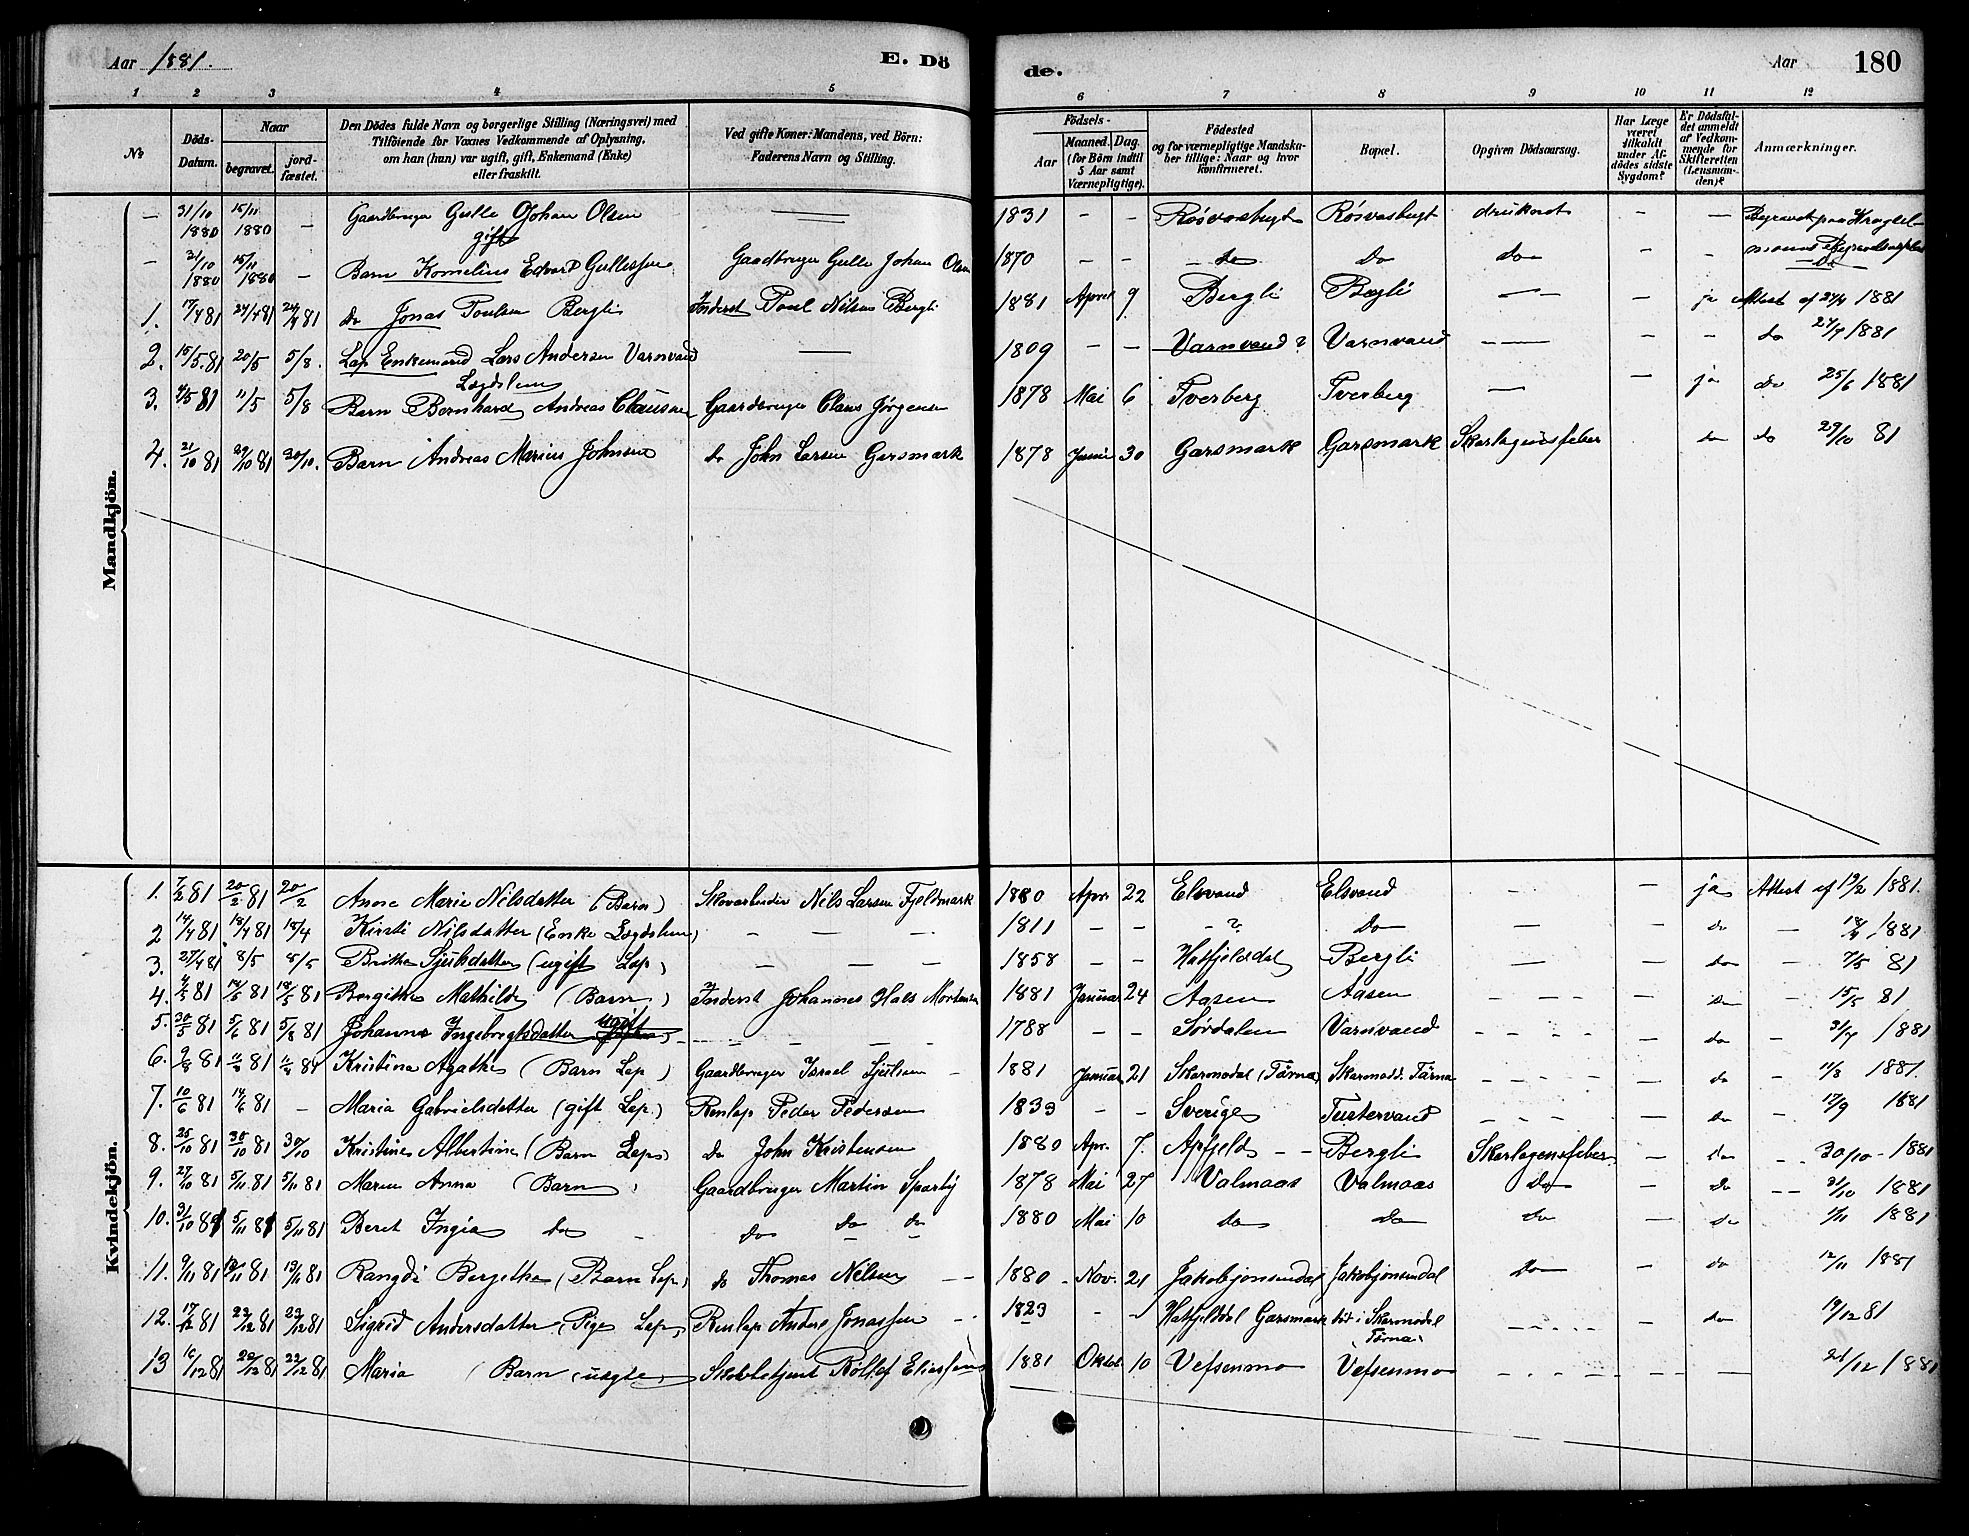 Aar 1881.
E. Dö
de.
Aar
180
1 2 3 4 5 6 7 8 9 10 11 12
No
Döds-Datum.
Naar
begravet.
jord-fæstet.
Den Dödes fulde Navn og borgerlige Stilling (Næringsvei) med
Tilföiende for Voxnes Vedkommende af Oplysning,
om han (hun) var ugift, gift, Enkemand (Enke)
eller fraskilt.
Ved gifte Koner: Mandens, ved Börn:
Faderens Navn og Stilling.
Födsels-
Aar
Maaned. Dag.
(for Börn indtil
5 Aar samt
Værnepligtige).
Födested
og for værnepligtige Mandska-
ber tillige: Naar og hvor
konfirmeret.
Bopæl.
Opgiven Dödsaarsag.
Har Læge
været
tilkaldt
under Af-
dödes sidste
Sygdom?
Er Dödsfal-
det anmeldt
af Vedkom-
mende for
Skifteretten
(Lensman-
den)?
Anmærkninger.
Mandkjön.
— 31/10 1880 15/11 1880 — Gaardbruger Gulle Johan Olsen gift — 1831 - - Røsvasbugt Røsvasbugt druknet - — Begravet paa
— 31/10 1880 15/11 1880 — Barn Kornelius Edvard Gullessen Gaardbruger Gulle Johan Olsen 1870 - - do do do - - do
1. 17/4 81 24/4 81 24/4 81 do Jonas Poulsen Bergli Inderst Poul Nilsen Bergli 1881 April 9 Bergli Bergli — - ja Attest af 27/4 1881
2. 15/5 81 20/5 5/8. Lap Enkemand Lars Andersen Varnvand Lægdslem — 1809 - - Varnvand? Varnvand - — - - do 1881
3. 4/5 81 11/5 5/8 Barn Bernhard Andreas Clausen Gaardbruger Claus Jørgensen 1878 Mai 6 Tverberg Tverberg — - ja do 25/6 1881
4. 21/10 81 29/10 81 30/10. Barn Andreas Marius Johnsen do John Larsen Garsmark 1878 Juni 30 Garsmark Garsmark Skarlagensfeber do do 29/10 81
Kvindekjön.
1. 7/2 81 20/2 81 20/2 Anne Marie Nilsdatter (Barn) Skovarbeider Nils Larsen Fjeldmark 1880 Apr. 22 Elsvand Elsvand - - ja Attest af 19/2 1881.
2 14/4 81 18/4 81 18/4 Kirsti Nilsdatter (Enke Lægdslem) — — — 1811 - - - ? do — - do — 18/4 1881
3. 27/4 81 8/5 8/5 Britha Sjulsdatter (ugift Lap) — — — 1858 - - Hatfjelddal Bergli — - do — 7/5 81
4. 4/5 81 18/5 81 18/5 81 Bergithe Mathilde (Barn) Inderst Johannes Hals Mortensen 1881 Januar 24 Aasen Aasen - - - - - do — 15/5 81
5. 30/5 81 5/6 81 5/8 81 Johanne Ingebregtsdatter ugift - - - - 1788 - - Sørdalen Varnvand - - - - - do - 31/7 1881
6. 2/8 81 11/8 81 11/8 81 Kristina Agathe (Barn Lap) Gaardbruger Israel Sjulsen - 1881 Januar 21 Skarmodal (Tärna) Skarmodd. Tärna - - - - - do - 11/8 1881.
7. 10/6 81 14/6 81 - Maria Gabrielsdatter (gift Lap.) Renlap Peder Pedersen 1833 - - Sverige Tustervand - - - - do - 17/9 1881
8. 25/10 81 30/10 81 30/10 Kristine Albertine (Barn Lap) do John Kristensen 1880 Apr. 7. Apfjeld - - Bergli Skarlagensfeber - do - - 30/10 - 1881
9. 27/10 81 5/11 81 5/11 81 Maren Anna (Barn) Gaardbruger Martin Sparby 1878 Mai 27 Valmaas Valmaas do - do - - 31/10 1881
10. 31/10 81 5/11 81 5/11 81 Beret Ingia do - do do do 1880 Mai 10 do do do — do 1/11 1881
11. 9/11 81 13/11 81 13/11 81 Rangdi Bergethe (Barn Lap) do Thomas Nilsen - - 1880 - Nov. 21 Jakobjonsendal Jakobjonsendal do - do 12/11 1881
12. 17/12 81 23/12 81 23/12 81 Sigrid Andersdatter (Pige Lap) Renlap Anders Jonassen - - 1823 - - Hatfjelddal Garsmark død i Skarmodal (Tärna) - - - - - do 19/12 81
13 16/12 81 22/12 81 22/12 81 Maria (Barn uægte) Rolluf Eliassen 1881 Oktob 10 Vefsenmo Vefsenmo - - - - - - — 21/12 1881